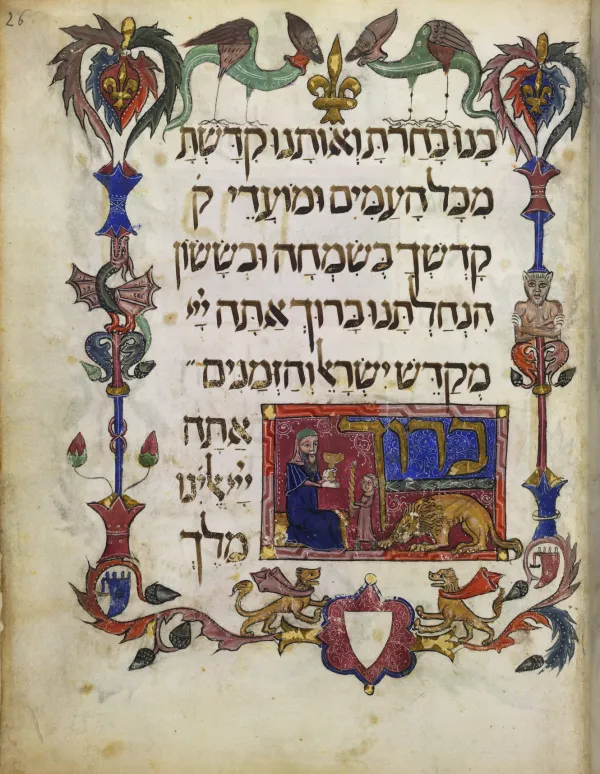 26
בָנוּ בָּחַרְתָּ וְאוֹתָנוּ קִדַּשְׁתָּ
מִכָּל הָעַמִּים וּמוֹעֲדֵי ק
קָדְשֶׁךָ בְּשִׂמְחָה וּבְשָׂשׂוֹן
הִנְחַלְתָּנוּ בָּרוּךְ אַתָּה יְיָ
מְקַדֵּשׁ יִשְׂרָאֵל וְהַזְּמַנִּים״
ברוך
אַתָּה
יְיָ אֱלֹהֵינוּ
מֶלֶךְ